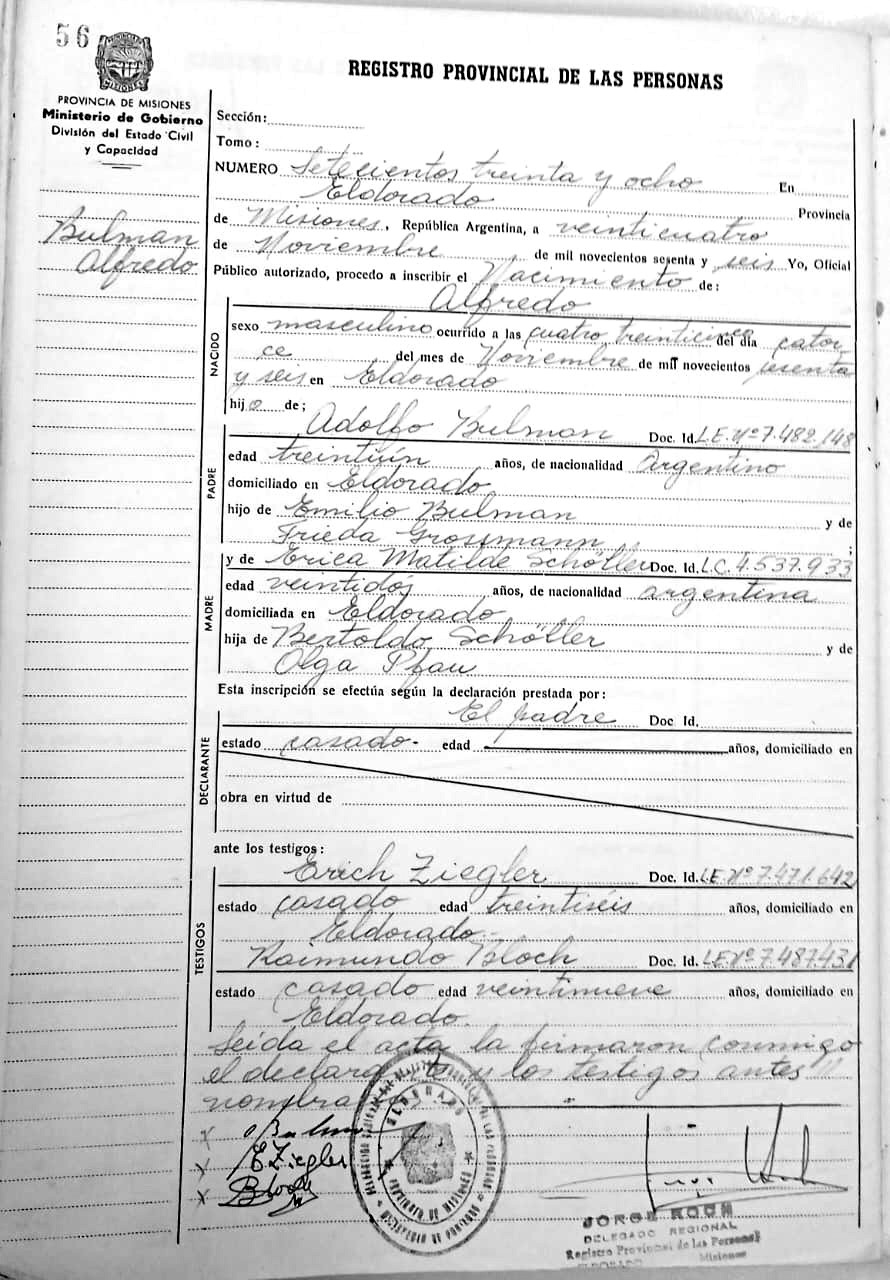 56
PROVINCIA DE MISIONES
Ministerio de Gobierno
División del Estado Civil
y Capacidad
Bulman
Alfredo
REGISTRO PROVINCIAL DE LAS PERSONAS
Sección:
Tomo:
NUMERO Setecientos treinta y ocho En
Eldorado Provincia
de Misiones, República Argentina, a veinticuatro
de Noviembre de mil novecientos sesenta y seis Yo, Oficial
Público autorizado, procedo a inscribir el Nacimiento de:
Alfredo
NACIDO
sexo masculino ocurrido a las cuatro treinticinco del día cator-
ce del mes de Noviembre de mil novecientos sesenta
y seis en Eldorado
hijo de;
Adolfo Bulman Doc. Id. L.E. Nº 7.482.148
PADRE
edad treintiún años, de nacionalidad Argentino
domiciliado en Eldorado
hijo de Emilio Bulman y de
Frieda Grossmann ;
y de Erica Matilde Schöller Doc. Id. L.C. 4.537.933
MADRE
edad veintidós años, de nacionalidad argentina
domiciliada en Eldorado
hija de Bertoldo Schöller y de
Olga Pfau
Esta inscripción se efectúa según la declaración prestada por:
El padre Doc. Id.
DECLARANTE
estado casado- edad años, domiciliado en
obra en virtud de
ante los testigos:
Erich Ziegler Doc. Id. L.E. Nº 7.471.642
TESTIGOS
estado casado edad treintiséis años, domiciliado en
Eldorado.-
Raimundo Bloch Doc. Id. L.E. Nº 7.487.431
estado casado edad veintinueve años, domiciliado en
Eldorado.
Leída el acta la firmaron conmigo
el declarante y los testigos antes
nombrados.
E. Ziegler
Bloch
ELDORADO
PROVINCIA DE MISIONES
JORGE KOCH
DELEGADO REGIONAL
Registro Provincial de las Personas
ELDORADO Misiones